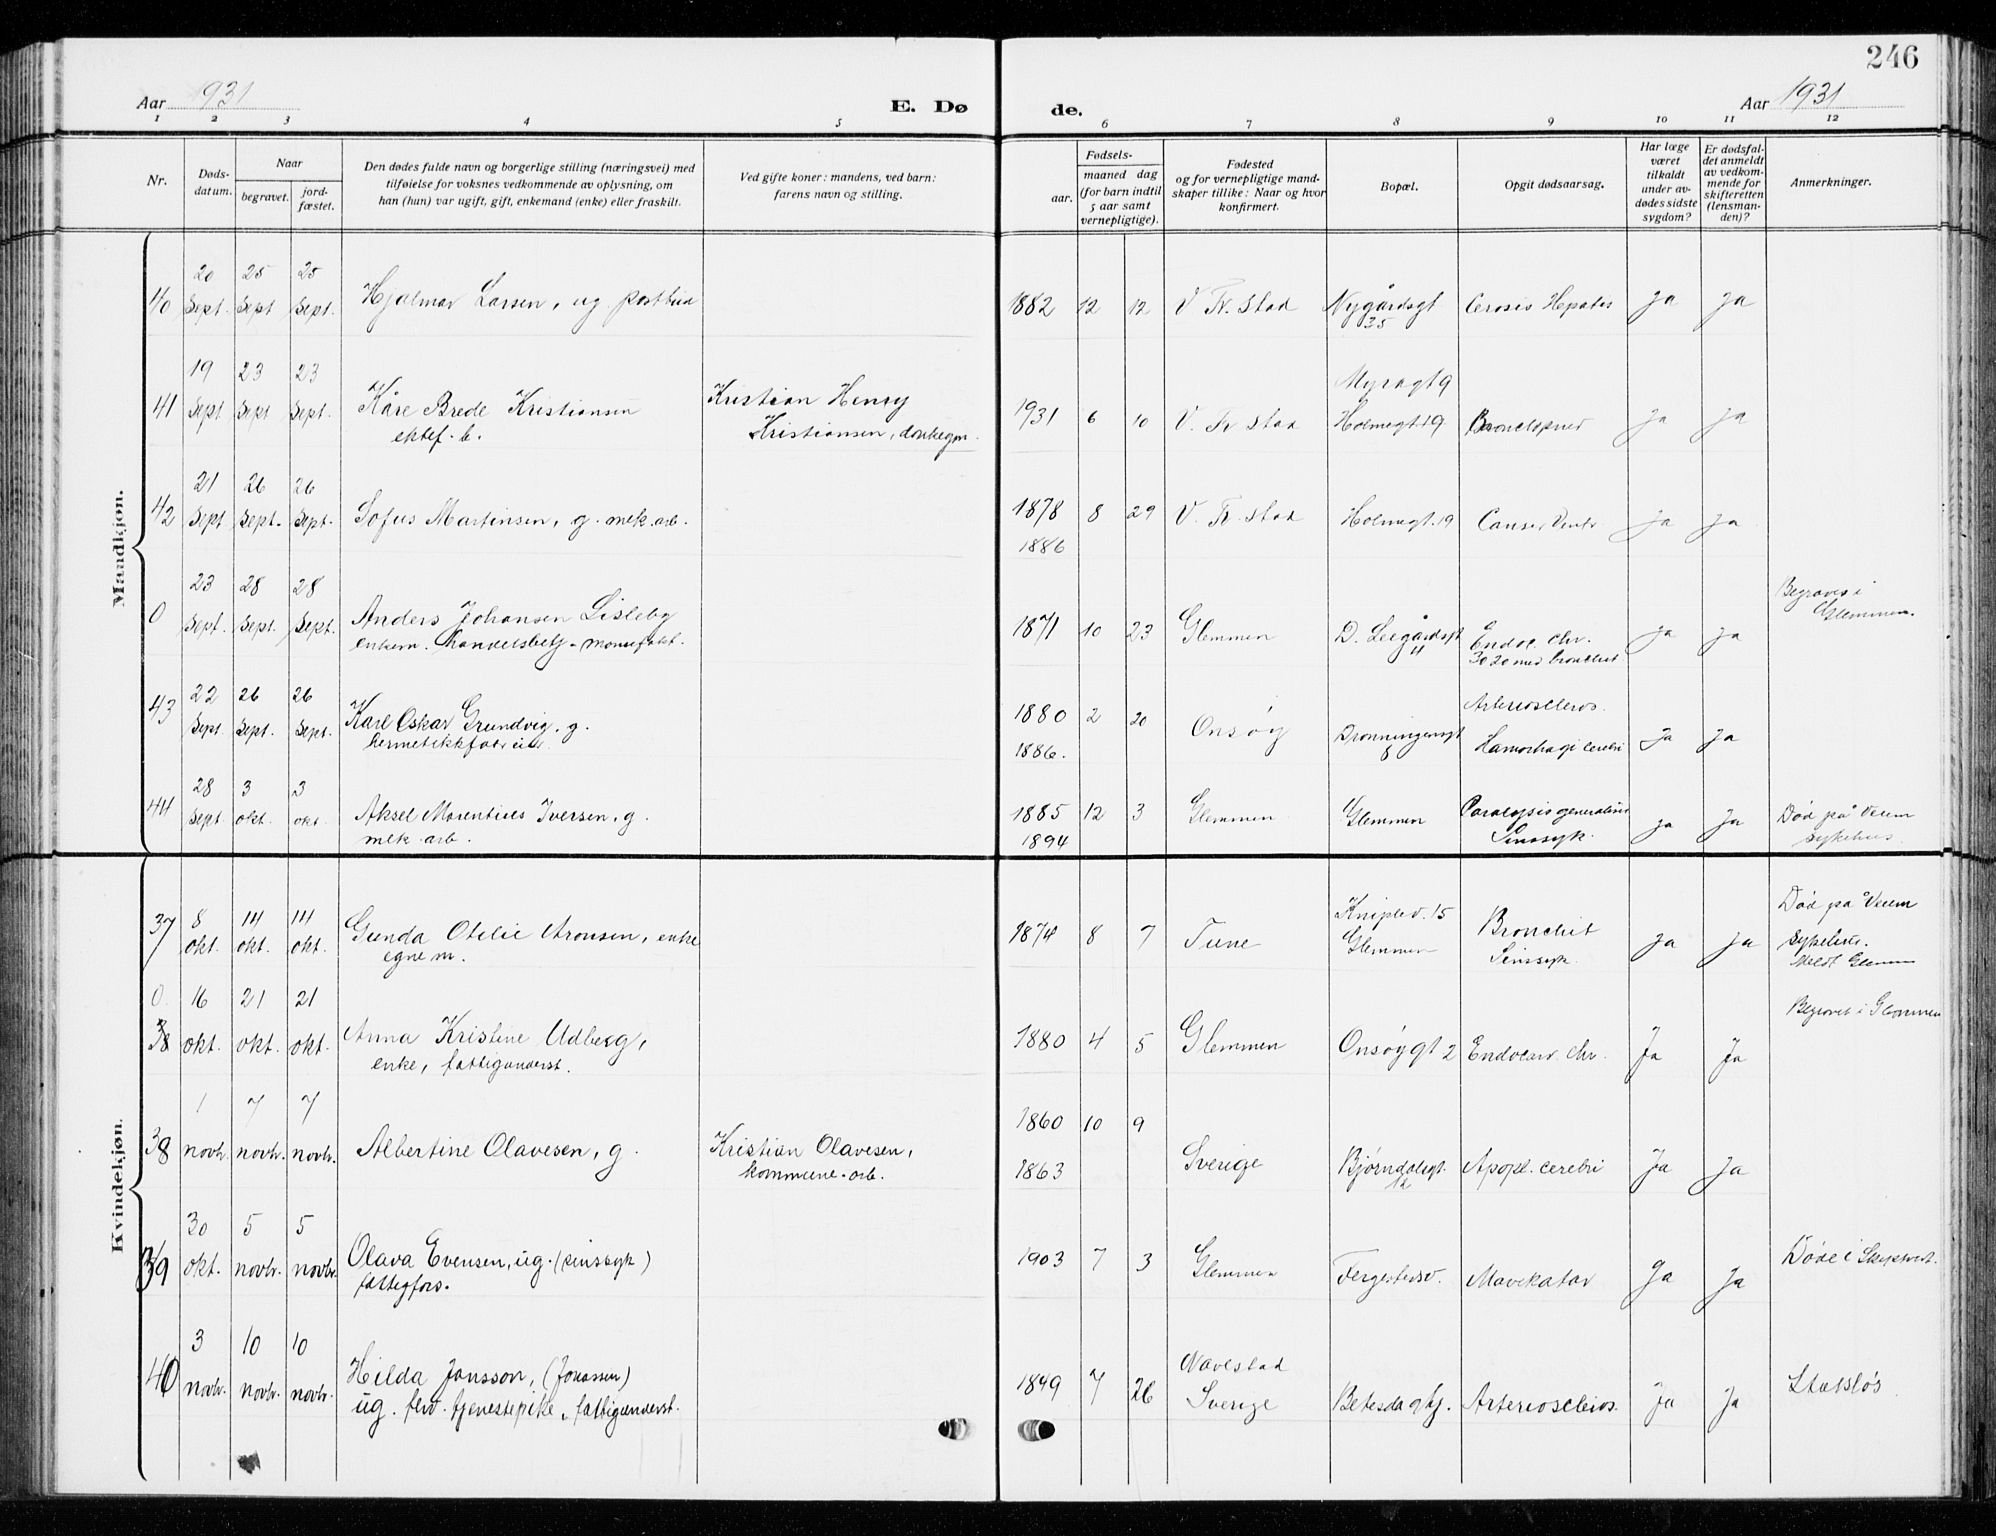 246
Aar 1931
E. Dø
de.
Aar 1931
1 2 3 4 5 6 7 8 9 10 11 12
Nr.
Døds-
datum.
Naar
begravet.
jord-
fæstet.
Den dødes fulde navn og borgerlige stilling (næringsvei) med
tilføielse for voksnes vedkommende av oplysning, om
han (hun) var ugift, gift, enkemand (enke) eller fraskilt.
Ved gifte koner: mandens, ved barn:
farens navn og stilling.
Fødsels-
aar.
maaned dag
(for barn indtil
5 aar samt
vernepligtige).
Fødested
og for vernepligtige mand-
skaper tillike: Naar og hvor
konfirmert.
Bopæl.
Opgit dødsaarsag.
Har læge
været
tilkaldt
under av-
dødes sidste
sygdom?
Er dødsfal-
det anmeldt
av vedkom-
mende for
skifteretten
(lensman-
den)?
Anmerkninger.
Mandkjøn.
20 25 25
40 Sept. Sept Sept. Hjalmar Larsen, ug. postbud 1882 12 12 V. Fr. stad Nygårdsgt Cerosis Hepatis Ja Ja
35
19 23 23
Myragt 9
41 Sept Sept Sept. Kåre Brede Kristiansen Kristian Henry 1931 6 10 V. Fr stad Holmegt 19 Ja Ja
ektef. b. Kristiansen,
21 26 26
42 Sept Sept. Sept. Sofus Martinsen, g. mek. arb. 1878 8 29 V. Fr. stad Holmegt. 19 Ja Ja
1886
23 28 28
Begraves i
Glemmen.
0 Sept. Sept. Sept. Anders Johansen Lisleby 1871 10 23 Glemmen D. Leegårdsgt Endoc. chr. Ja Ja
enkem. handelsbetj. 4
22 26 26
Arterioscleros.
43 Sept. Sept. Sept. Karl Oskar Grundvig, g. 1880 2 20 Onsøy Dronningensgt Hamorhagi cerebri Ja Ja
1886. 8
28 3 3
44 Sept okt. okt. Aksel Morentius Iversen, g. 1885 12 3 Glemmen Glemmen Paralysis generalis Ja Ja Død på Veum
mek. arb. 1894 Sinssyk. sykehus.
Kvindekjøn.
8 14 14
Død på Veum
37 okt. okt. okt. Gunda Otelie Aronsen, enke 1874 8 7 Tune Kniplev. 15 Bronchit Ja Ja sykehus.
egne m. Glemmen Sinssyk. Meldt Glemm
0 16 21 21
Begravet i Glemmen
38 okt. okt. okt. Anna Kristine Udberg, 1880 4 5 Glemmen Onsøygt 2 Endocar. chr. Ja Ja
enke, fattigunderst.
1 7 7
1860 10 9
38 novbr. novbr. novbr. Albertine Olavesen, g. Kristian Olavesen, 1863 Sverige Bjørndalsgt. Apopl. cerebri Ja Ja
kommune-arb. 12
30 5 5
39 okt. novbr. novbr. Olava Evensen, ug. (sinssyk) 1903 7 3 Glemmen Fergestedsv. Mavekatar Ja Ja Døde i
fattigfors.
3 10 10
40 novbr. novbr. novbr. Hilda Jansson, (Jonassen) 1849 7 26 Navestad Betesda Arterioscleros. Ja Ja Statsløs
ug. fhv. tjenestepike, fattigunderst. Sverige